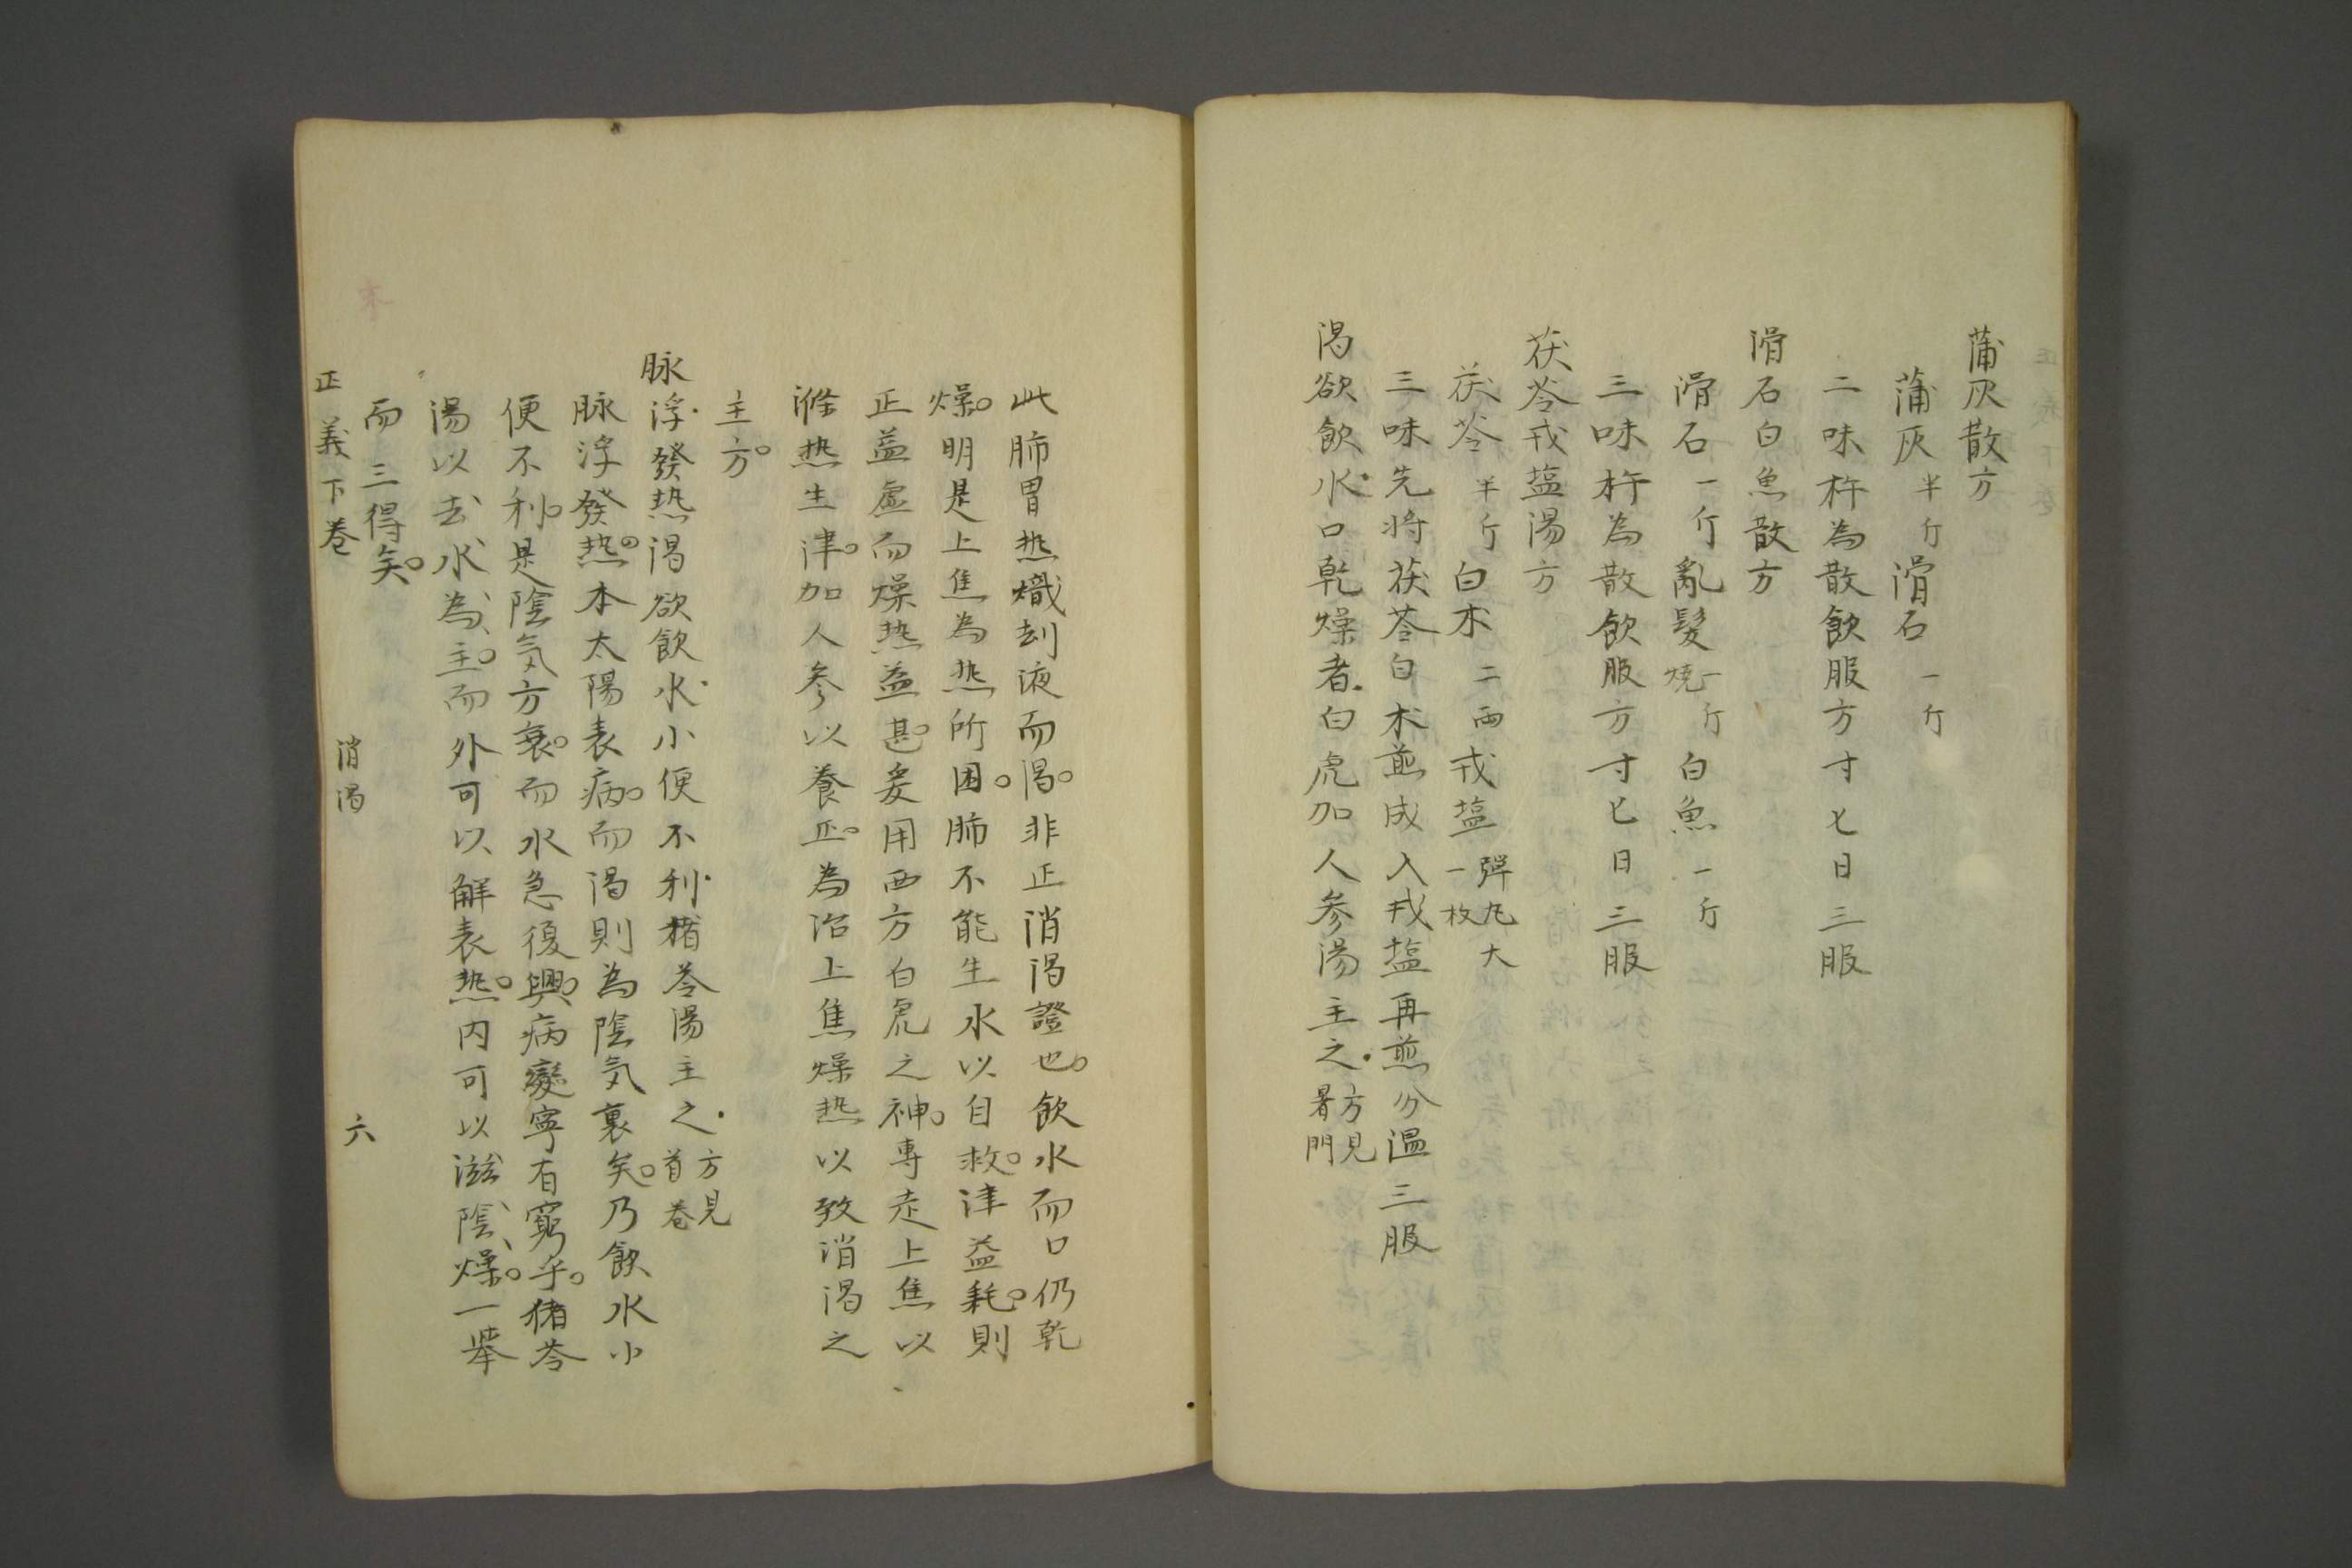 蒲灰散方
蒲灰半斤滑石一斤
二味杵為散飲服方寸匕日三服
滑石白魚散方
滑石一斤亂髮一斤燒白魚一斤
三味杵為散飲服方寸匕日三服
茯苓戎塩湯方
茯苓半斤白朮二兩戎塩彈丸大一枚
三味先将茯苓白朮煎成入戎塩再煎分温三服
渴欲飲水口乾燥者白虎加人參湯主之方見暑門
此肺胃热熾刦液而渴。非正消渴證也。飲水而口仍乾
燥。明是上焦為热所困。肺不能生水以自救。津益耗。則
正益虛而燥热益甚。爰用西方白虎之神。專走上焦以
滌热生津。加人參以養正。為治上焦燥热以致消渴之
主方。
脉浮發热渴欲飲水小便不利猪苓湯主之方見首卷
脉浮發热。本太陽表病。而渴則為陰気裏矣。乃飲水小
便不利。是陰気方衰。而水急復興。病變寧有窮乎。猪苓
湯以去水為主。而外可以解表热。内可以滋陰燥。一舉
而三得矣。
正義下卷 消渴 六